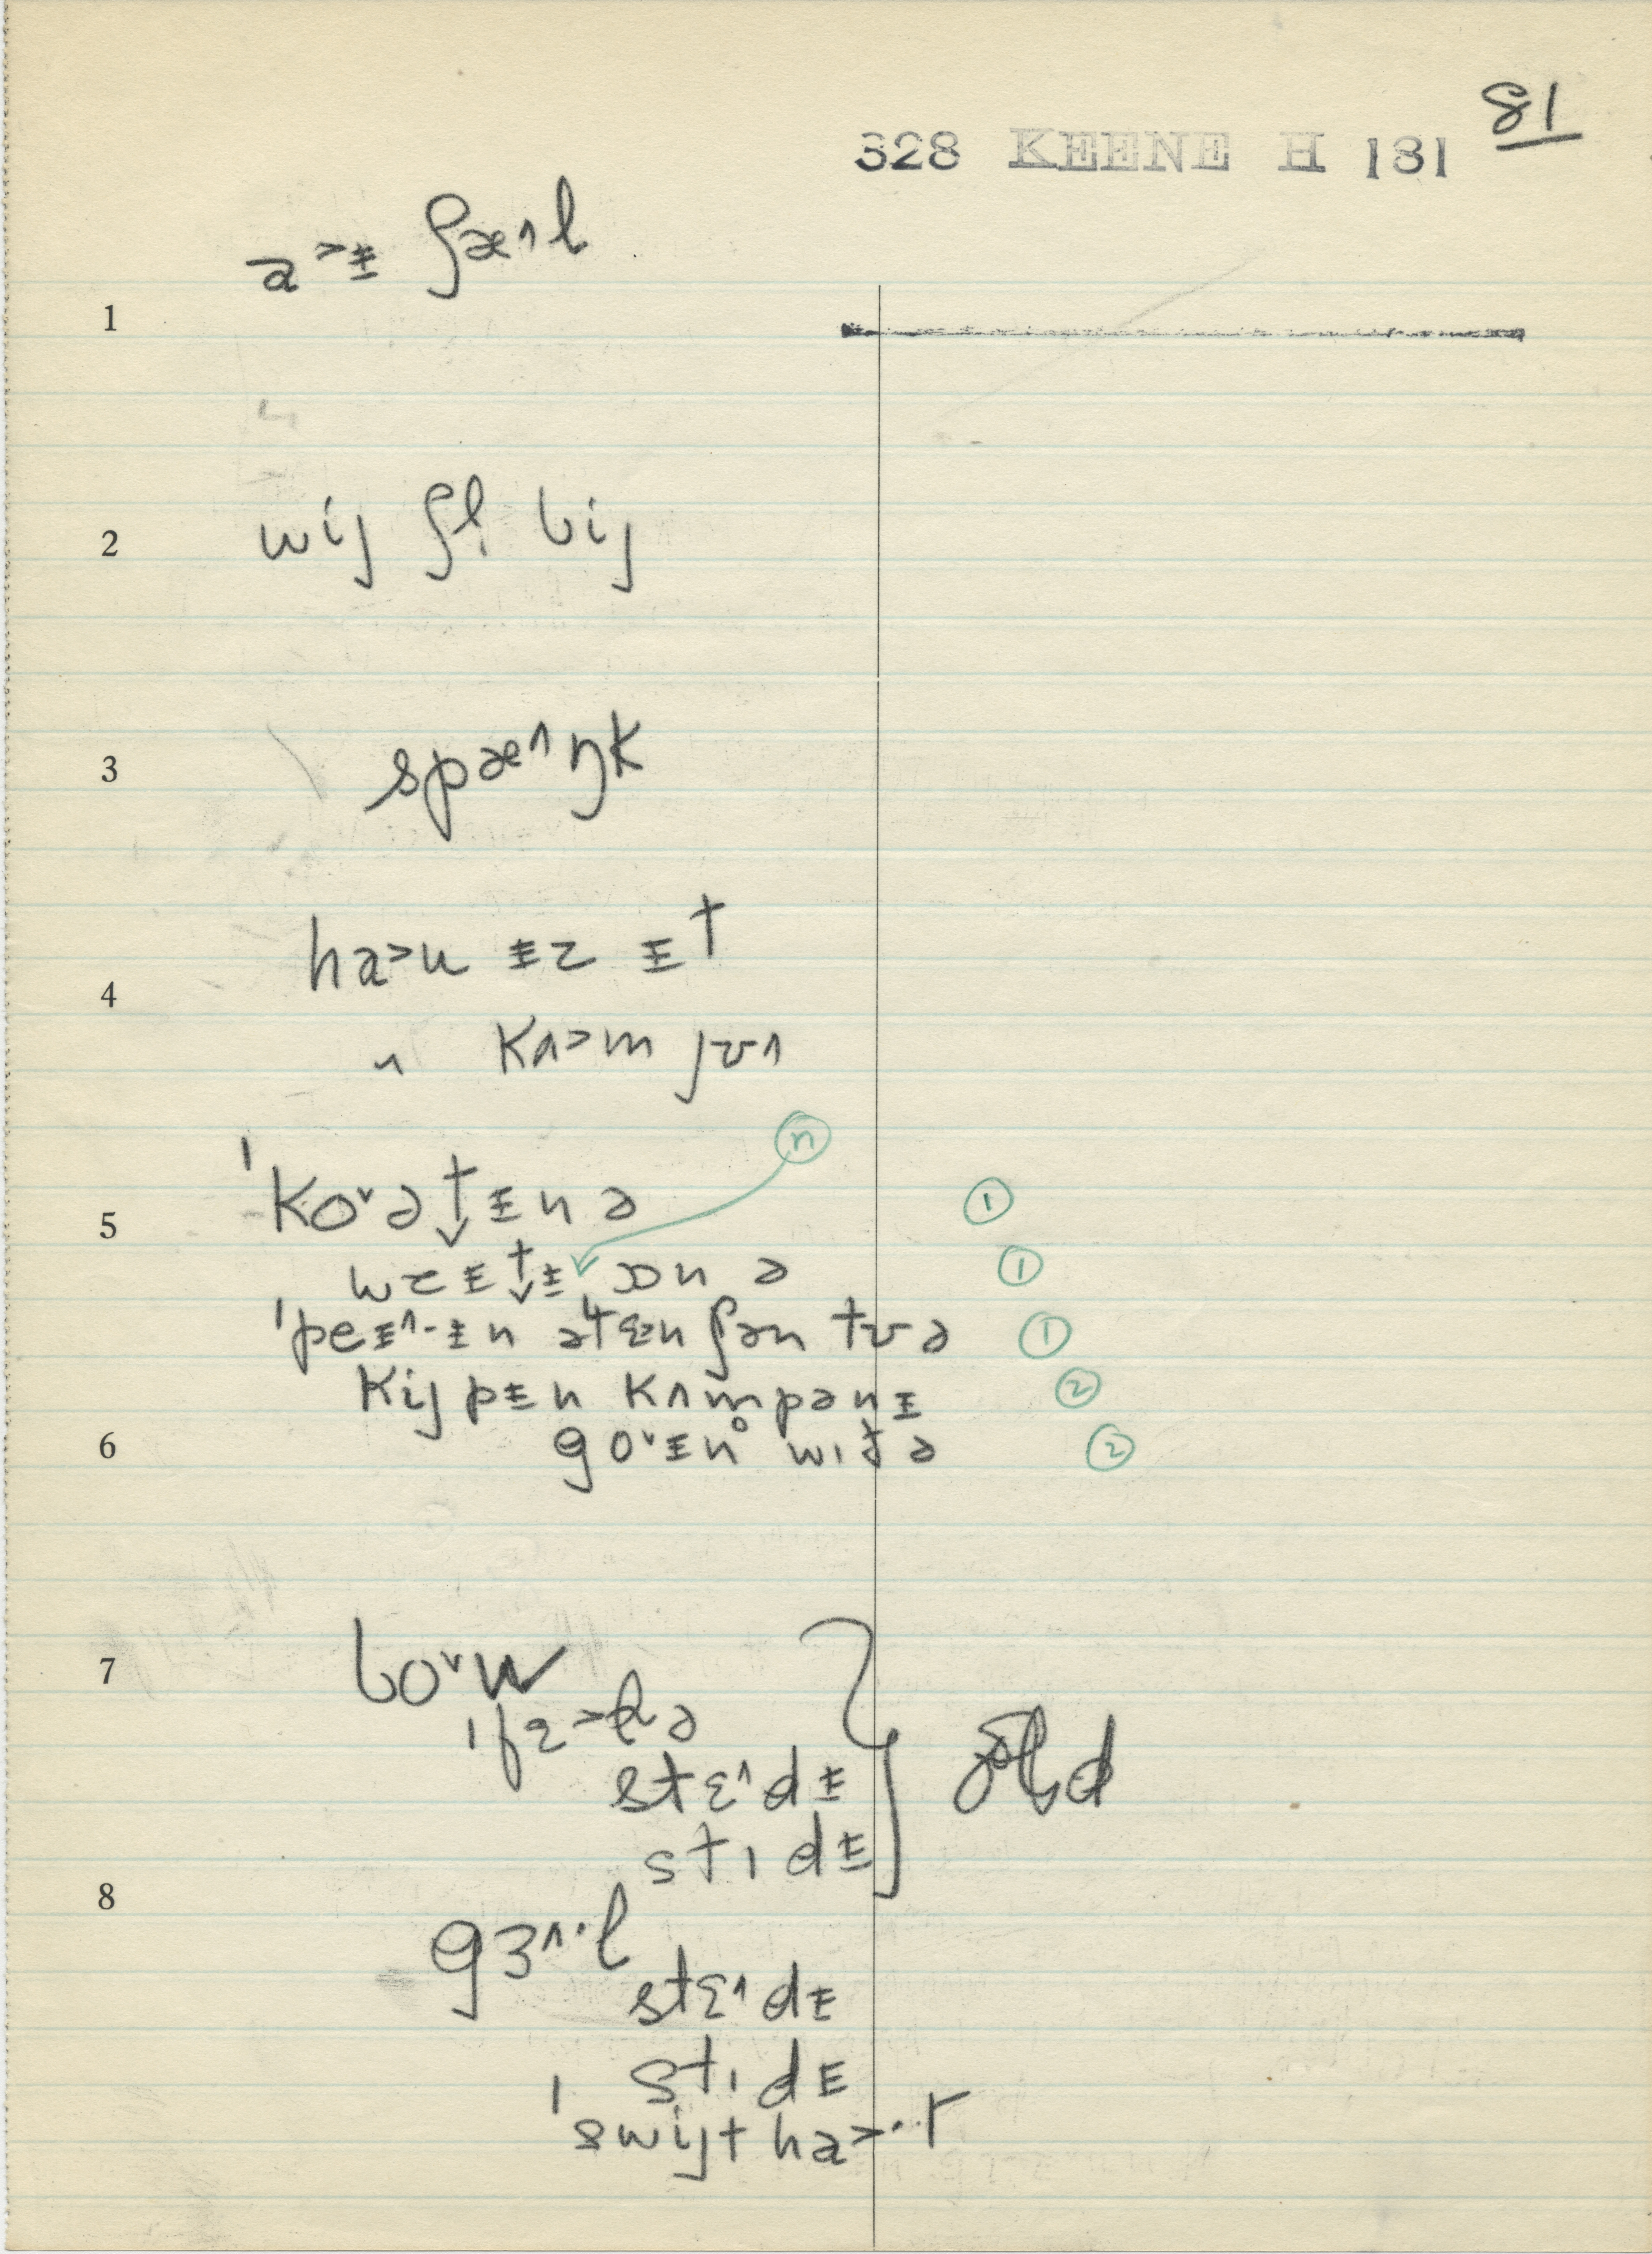 81
328 KEENE H 181
a˃ᵻ ʃæ˄l
1
2 wij ʃl̩ bij
3 spæ˄ŋk
4 ha˃u ᵻz ᵻt
" kʌ˃m jʊ˄
n
5 ˈko˅ət̬ᵻnə 1
wzᵻt̬ᵻ ɔnə 1
ˈpeᵻ˄-ᵻn ətɛnʃən tʊə 1
kijpᵻn kʌmpənᵻ 2
6 go˅ᵻn̥ wɪðə 2
7 bo˅w
ˈfɛ˃lə
stɛ˄dᵻ
stɪdᵻ
8
gɜ˄·l
stɛ˄dᵻ
stɪdᵻ
ˈswijtha˃·r